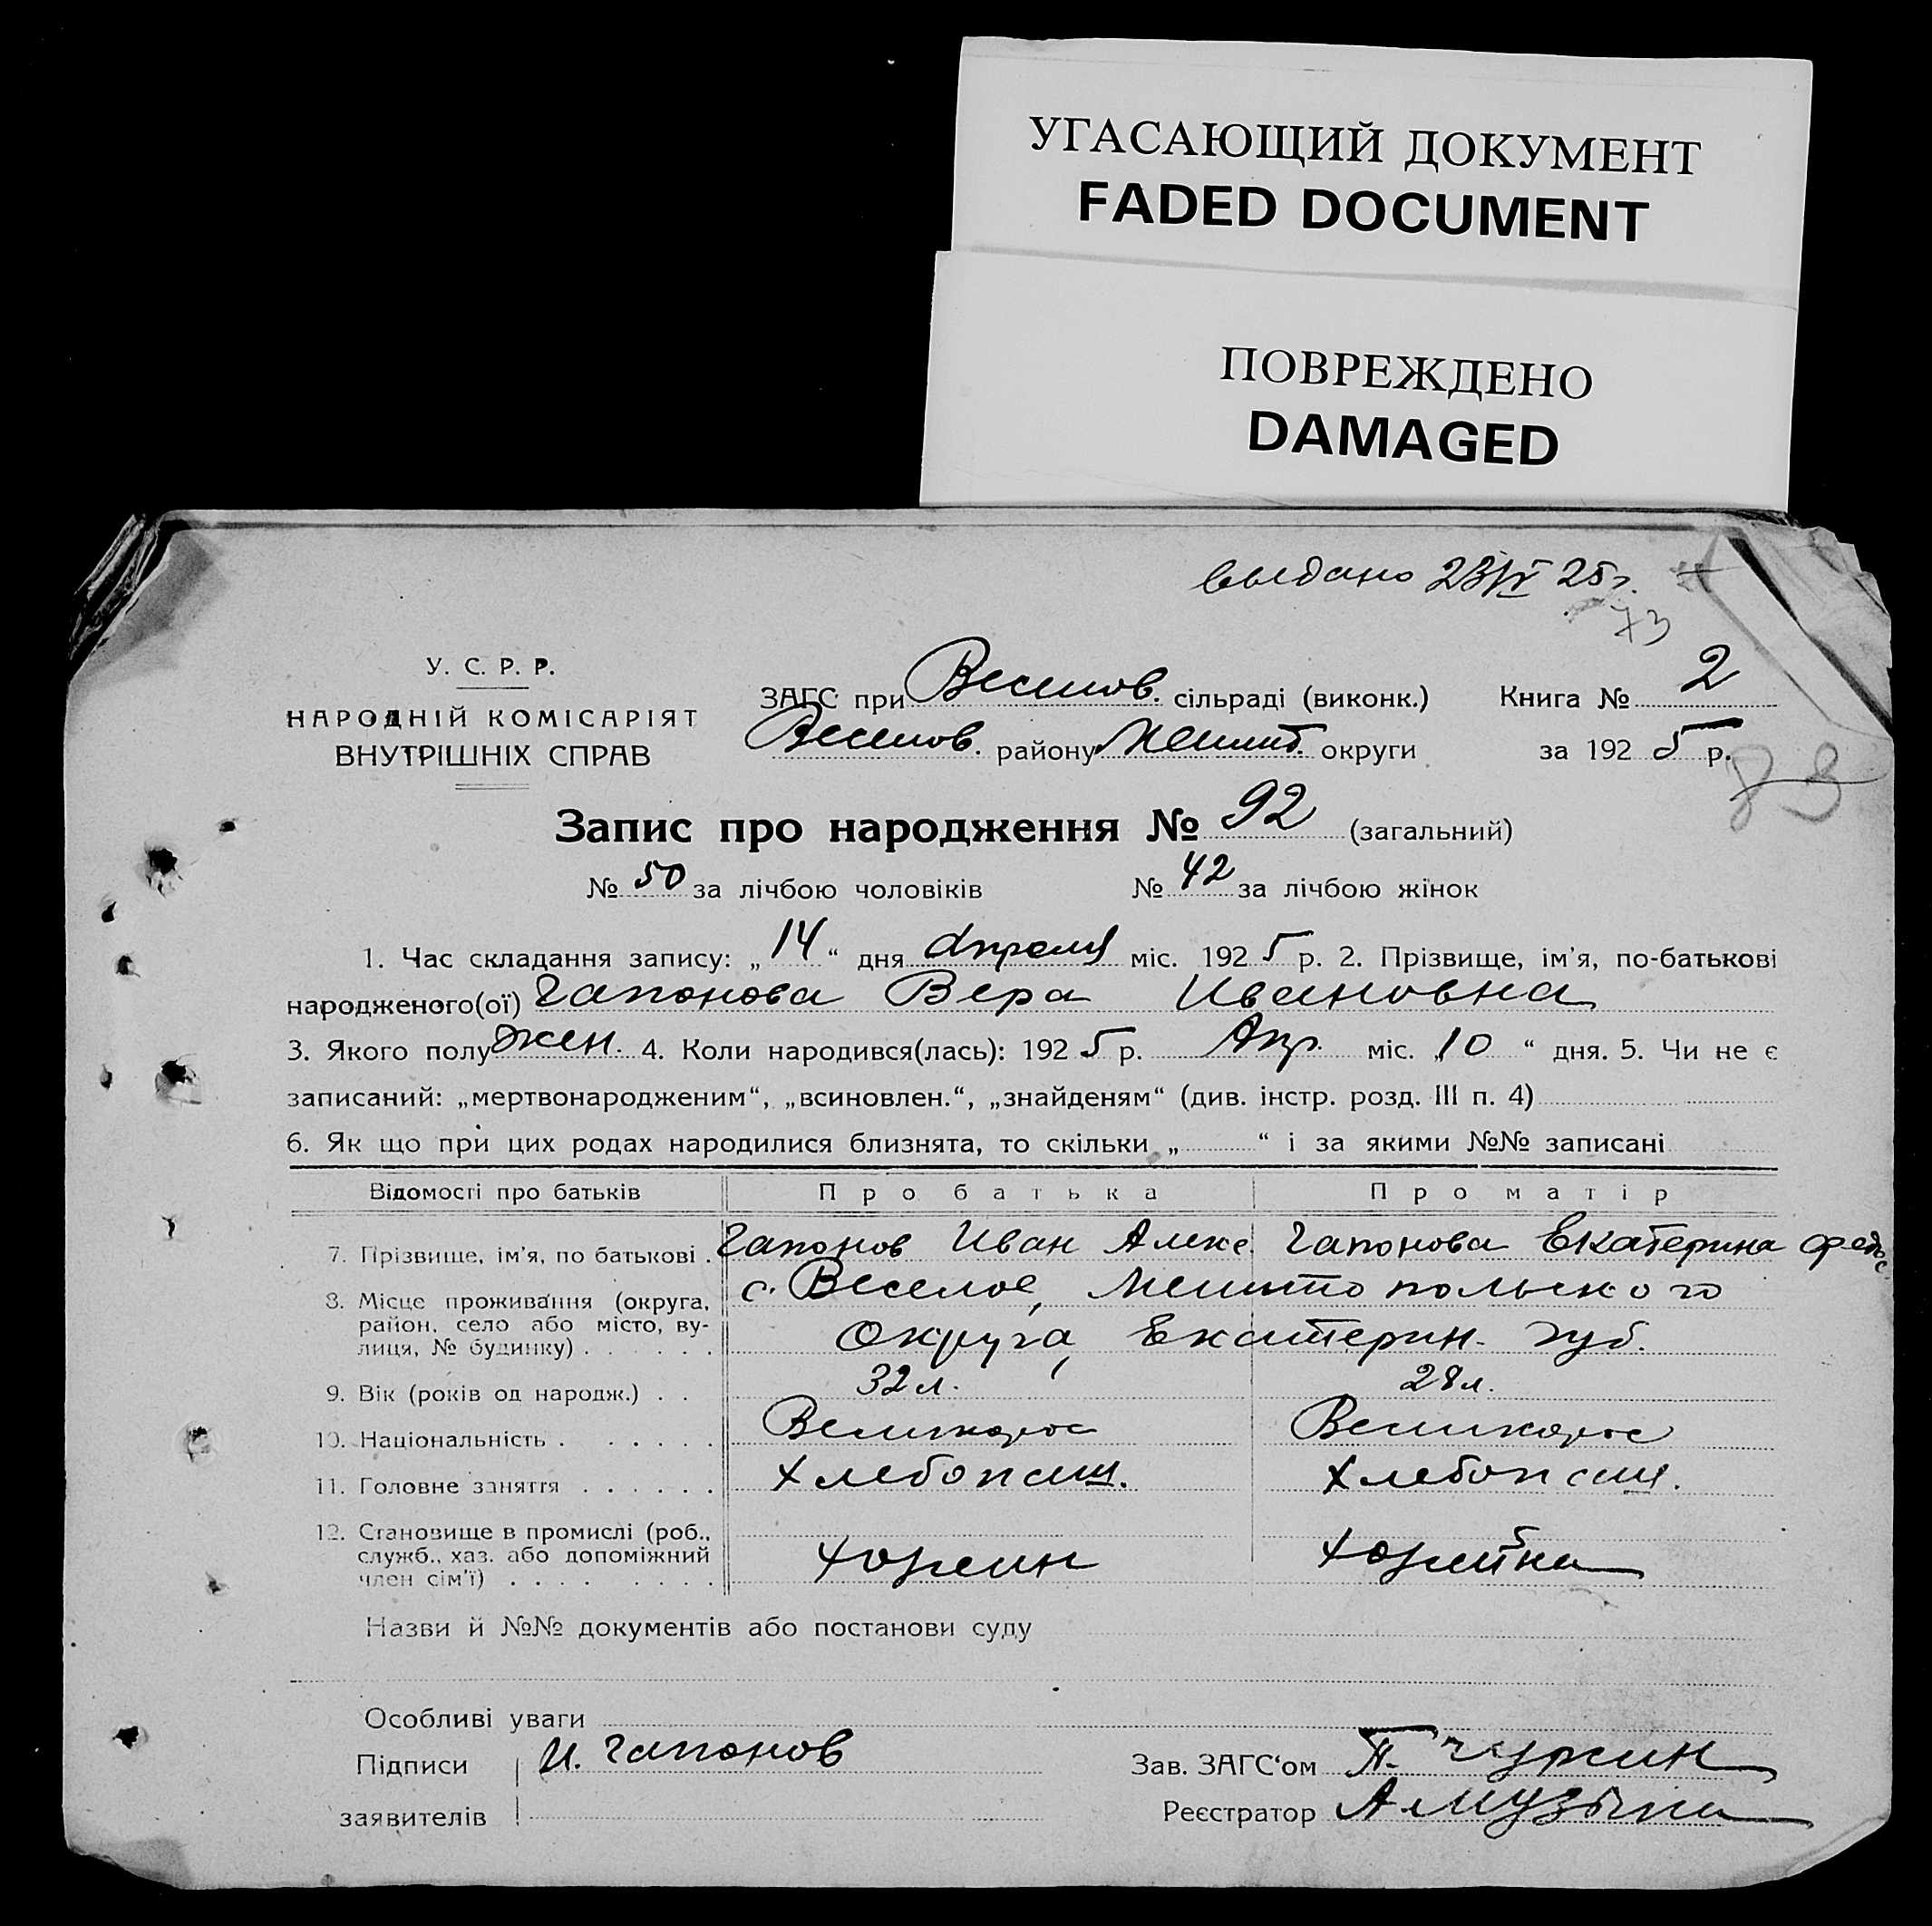 УГАСАЮЩИЙ ДОКУМЕНТ
FADED DOCUMENT
ПОВРЕЖДЕНО
DAMAGED
выдано 23/IV 25 г.
73
У. С. Р. Р.
НАРОДНІЙ КОМІСАРІЯТ
ВНУТРІШНІХ СПРАВ
ЗАГС при Веселов. сільраді (виконк.) Книга № 2
Веселов. району Мелит. округи за 1925 р.
83
Запис про народження № 92 (загальний)
№ 50 за лічбою чоловіків № 42 за лічбою жінок
1. Час складання запису: „14“ дня апреля міс. 1925 р. 2. Прізвище, ім'я, по-батькові
народженого(ої) Гапонова Вера Ивановна
3. Якого полу жен. 4. Коли народився(лась): 1925 р. Апр. міс. „10“ дня. 5. Чи не є
записаний: „мертвонародженим“, „всиновлен.“, „знайденям“ (див. інстр. розд. III п. 4)
6. Як що при цих родах народилися близнята, то скільки „ “ і за якими №№ записані
Відомості про батьків Про батька Про матір
7. Прізвище, ім'я, по батькові . Гапонов Иван Алекс Гапонова Екатерина Федос
8. Місце проживання (округа, с. Веселое, Мелитопольского
район, село або місто, ву-
лиця, № будинку) . . . . . . Округа, Екатерин. губ.
9. Вік (років од народж.) . . 32 л. 28 л.
10. Національність . . . . . . Великорос Великорос
11. Головне заняття . . . . . . Хлебопаш. Хлебопаш.
12. Становище в промислі (роб.,
служб., хаз. або допоміжний Хозяин Хозяйка
член сім'ї) . . . . . . . .
Назви й №№ документів або постанови суду
Особливі уваги
Підписи И. Гапонов Зав. ЗАГС'ом П. Чуркин
заявителів Реєстратор А. Музыка